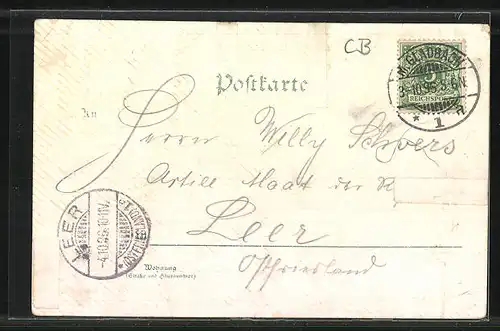 CB
M. GLADBACH
3.10.95.5-6N
5
REICHSPOST
* 1 h
Postkarte
An
Herrn Willy
Artill Maat der R
Leer
LEER
4.10.95.10-11V.
* (OSTFRIESL.)
Ostfriesland
Wohnung
(Straße und Hausnummer)